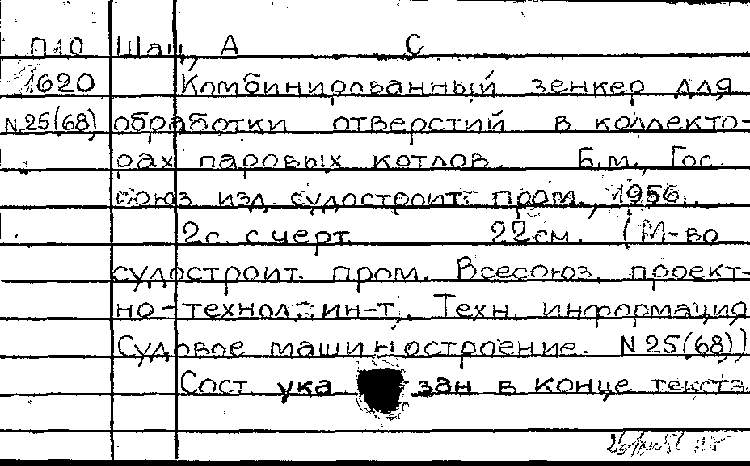 П10 Шац, А С
1620 Комбинированный зенкер для
N 25(68) обработки отверстий в коллекто-
рах паровых котлов. Б.м., Гос.
союз. изд. судостроит. пром., 1956.
2 с. с черт. 22 см. (М-во
судостроит. пром. Всесоюз. проект-
но-технол. ин-т. Техн. информация
Судовое машиностроение. N 25(68))
Сост. указан в конце текста